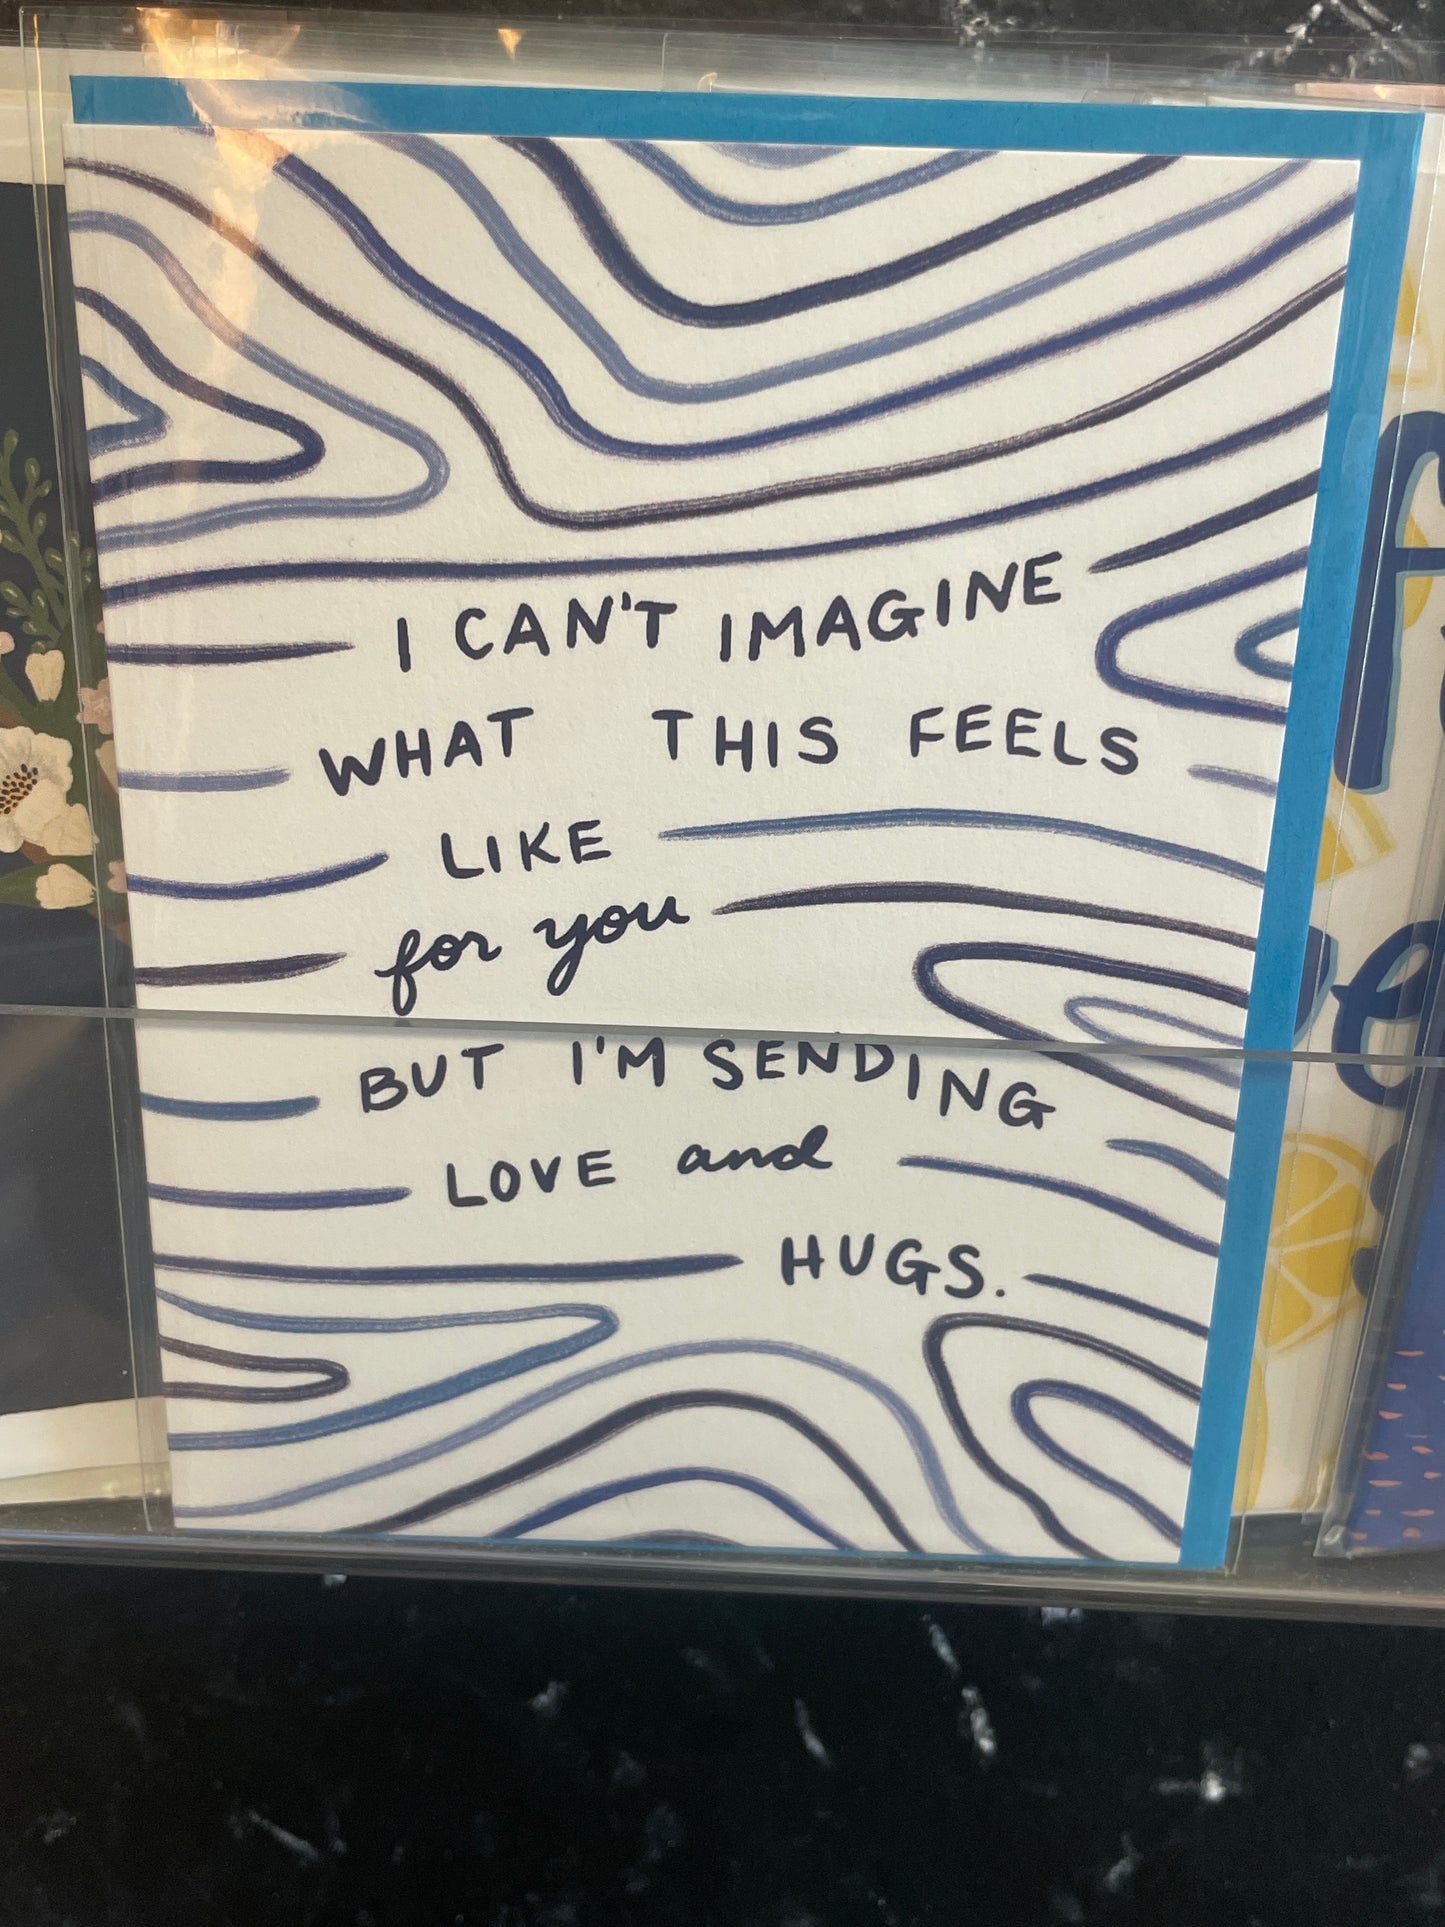 I CAN'T IMAGINE
WHAT THIS FEELS
LIKE
for you
BUT I'M SENDING
LOVE and
HUGS.